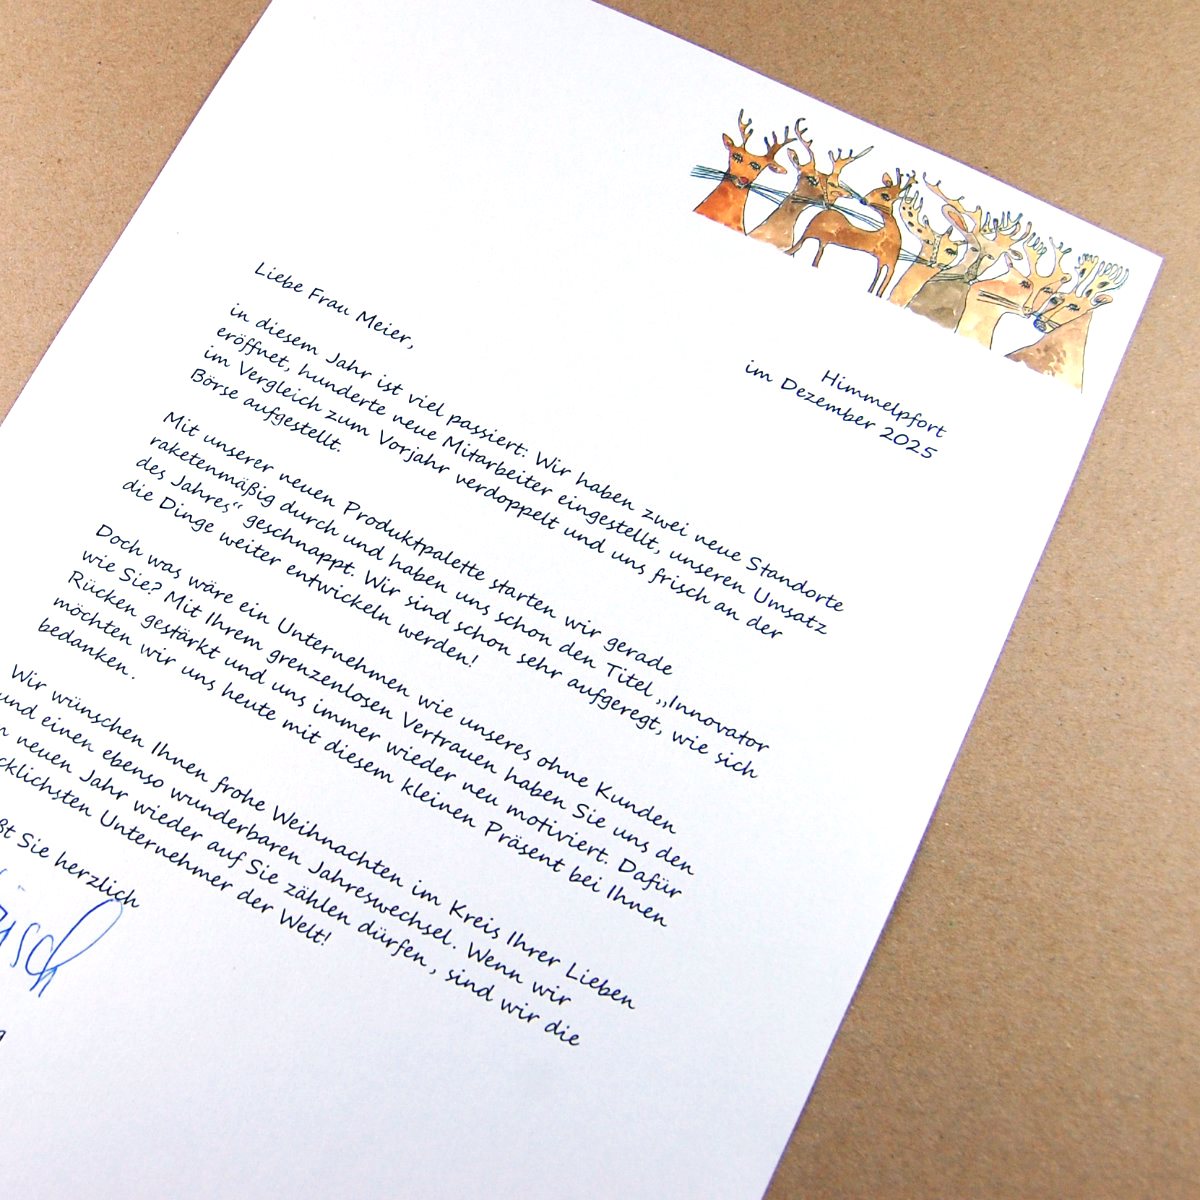 Himmelpfort
im Dezember 2025
Liebe Frau Meier,
in diesem Jahr ist viel passiert: Wir haben zwei neue Standorte
eröffnet, hunderte neue Mitarbeiter eingestellt, unseren Umsatz
im Vergleich zum Vorjahr verdoppelt und uns frisch an der
Börse aufgestellt.
Mit unserer neuen Produktpalette starten wir gerade
raketenmäßig durch und haben uns schon den Titel „Innovator
des Jahres“ geschnappt. Wir sind schon sehr aufgeregt, wie sich
die Dinge weiter entwickeln werden!
Doch was wäre ein Unternehmen wie unseres ohne Kunden
wie Sie? Mit Ihrem grenzenlosen Vertrauen haben Sie uns den
Rücken gestärkt und uns immer wieder neu motiviert. Dafür
möchten wir uns heute mit diesem kleinen Präsent bei Ihnen
bedanken.
Wir wünschen Ihnen frohe Weihnachten im Kreis Ihrer Lieben
und einen ebenso wunderbaren Jahreswechsel. Wenn wir
neuen Jahr wieder auf Sie zählen dürfen, sind wir die
cklichsten Unternehmer der Welt!
Sie herzlich